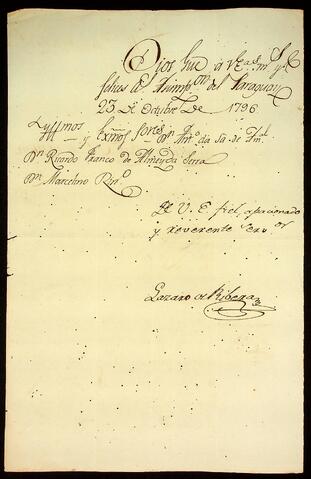 Dios gue a V Exas ms as
felices As Asumpon del Paraguay
23 de Octubre de 1796
Yllmos y Exmos Sores Dn Anto da Sa de
Dn Ricardo Franco de Almeyda Serra
Dn Marcelino Rno
De V. E. fiel, apacionado
y reverente servor
Lazaro de Ribera